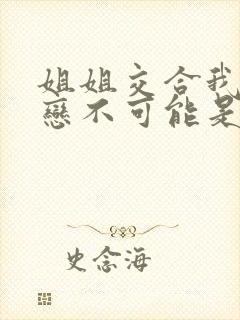 姐姐交合我
戀不可能是
史念海